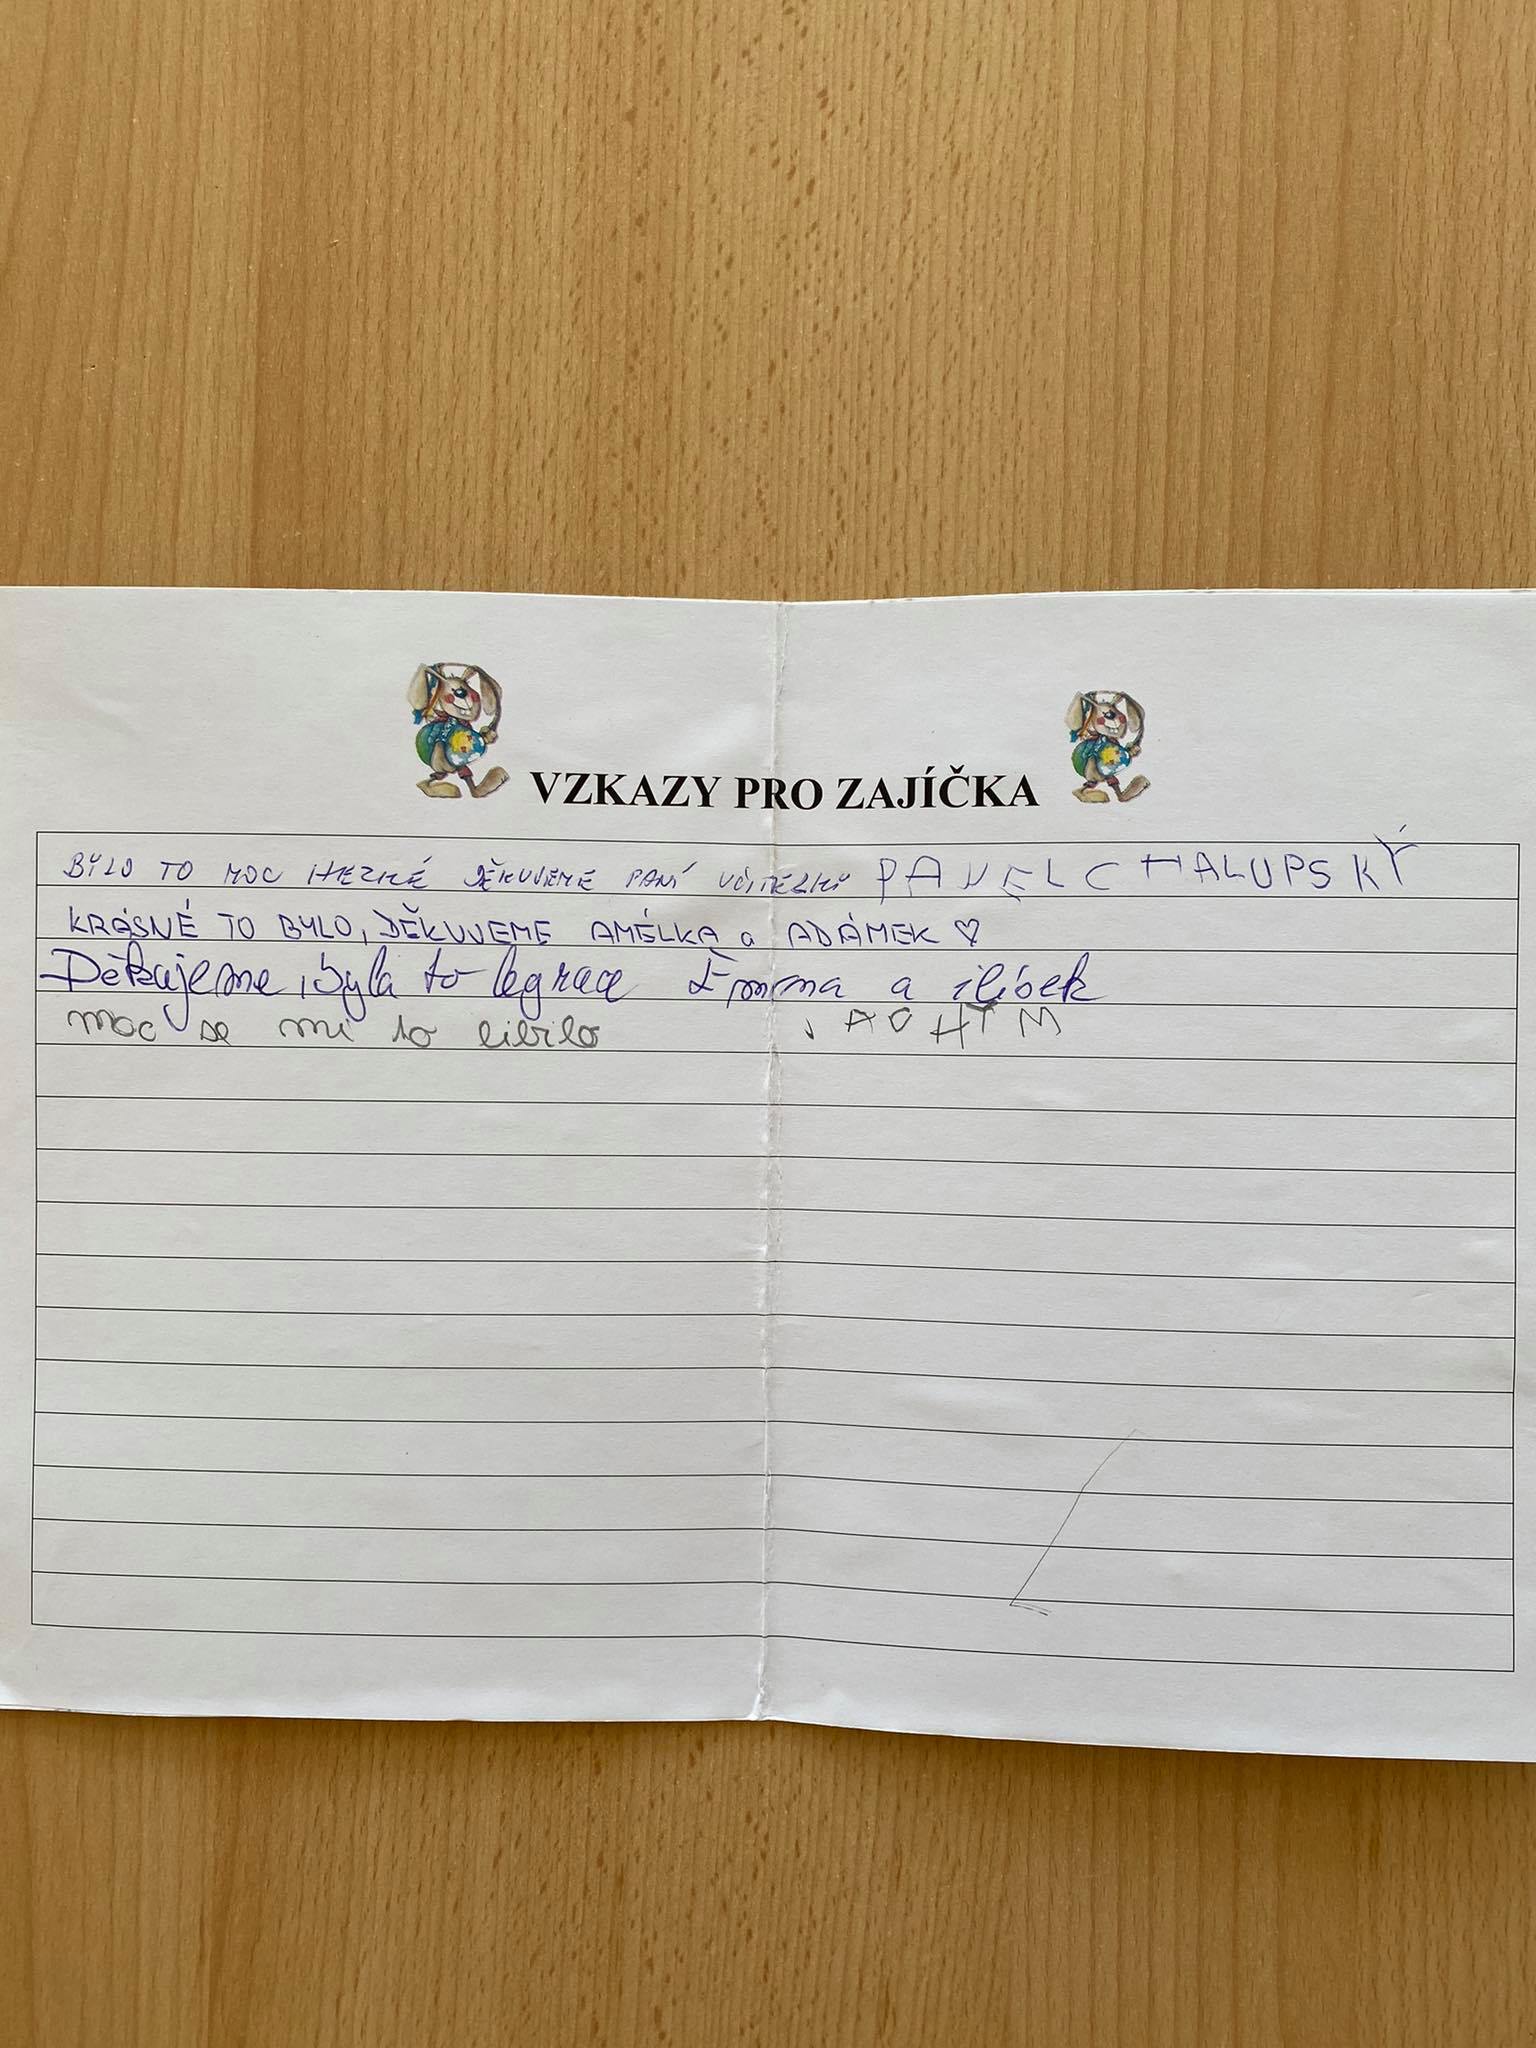 VZKAZY PRO ZAJÍČKA
BYLO TO MOC HEZKÉ DĚKUJEME PANÍ UČITELKY PAVEL CHALUPSKÝ
KRÁSNÉ TO BYLO, DĚKUJEME AMÉLKA a ADÁMEK ♡
Děkujeme, byla to legrace Emma a
moc se mi to libilo JACHYM